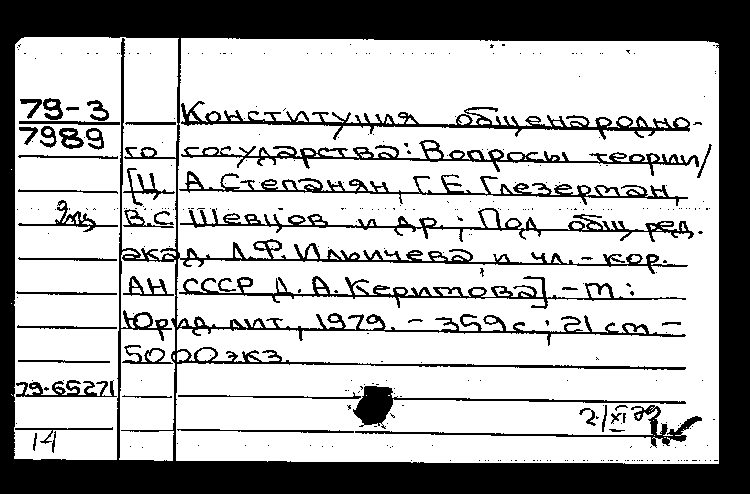 79-3 Конституция общенародно-
7989
го государства: Вопросы теории/
[Ц. А. Степанян, Г. Е. Глезерман,
В.С Шевцов и др.; Под общ. ред.
акад. Л.Ф. Ильичева и чл.-кор.
АН СССР Д. А. Керимова]. - М.:
Юрид. лит., 1979. - 359 с.; 21 см. -
5000 экз.
79-65271
2/XI 79
14